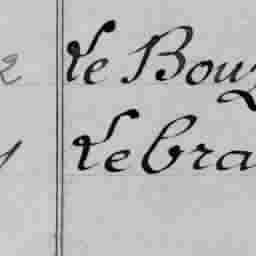 2 Le Bouz
Lebra